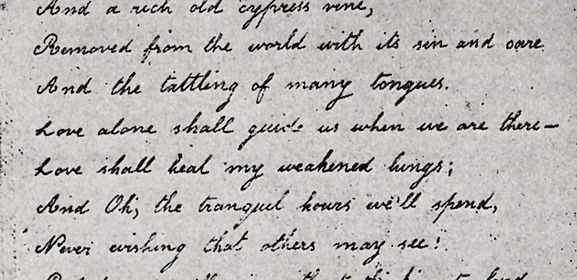 And a rich old cypress vine,
Removed from the world with its sin and care
And the tattling of many tongues.
Love alone shall guide us when we are there—
Love shall heal my weakened lungs;
And Oh, the tranquil hours we'll spend,
Never wishing that others may see!